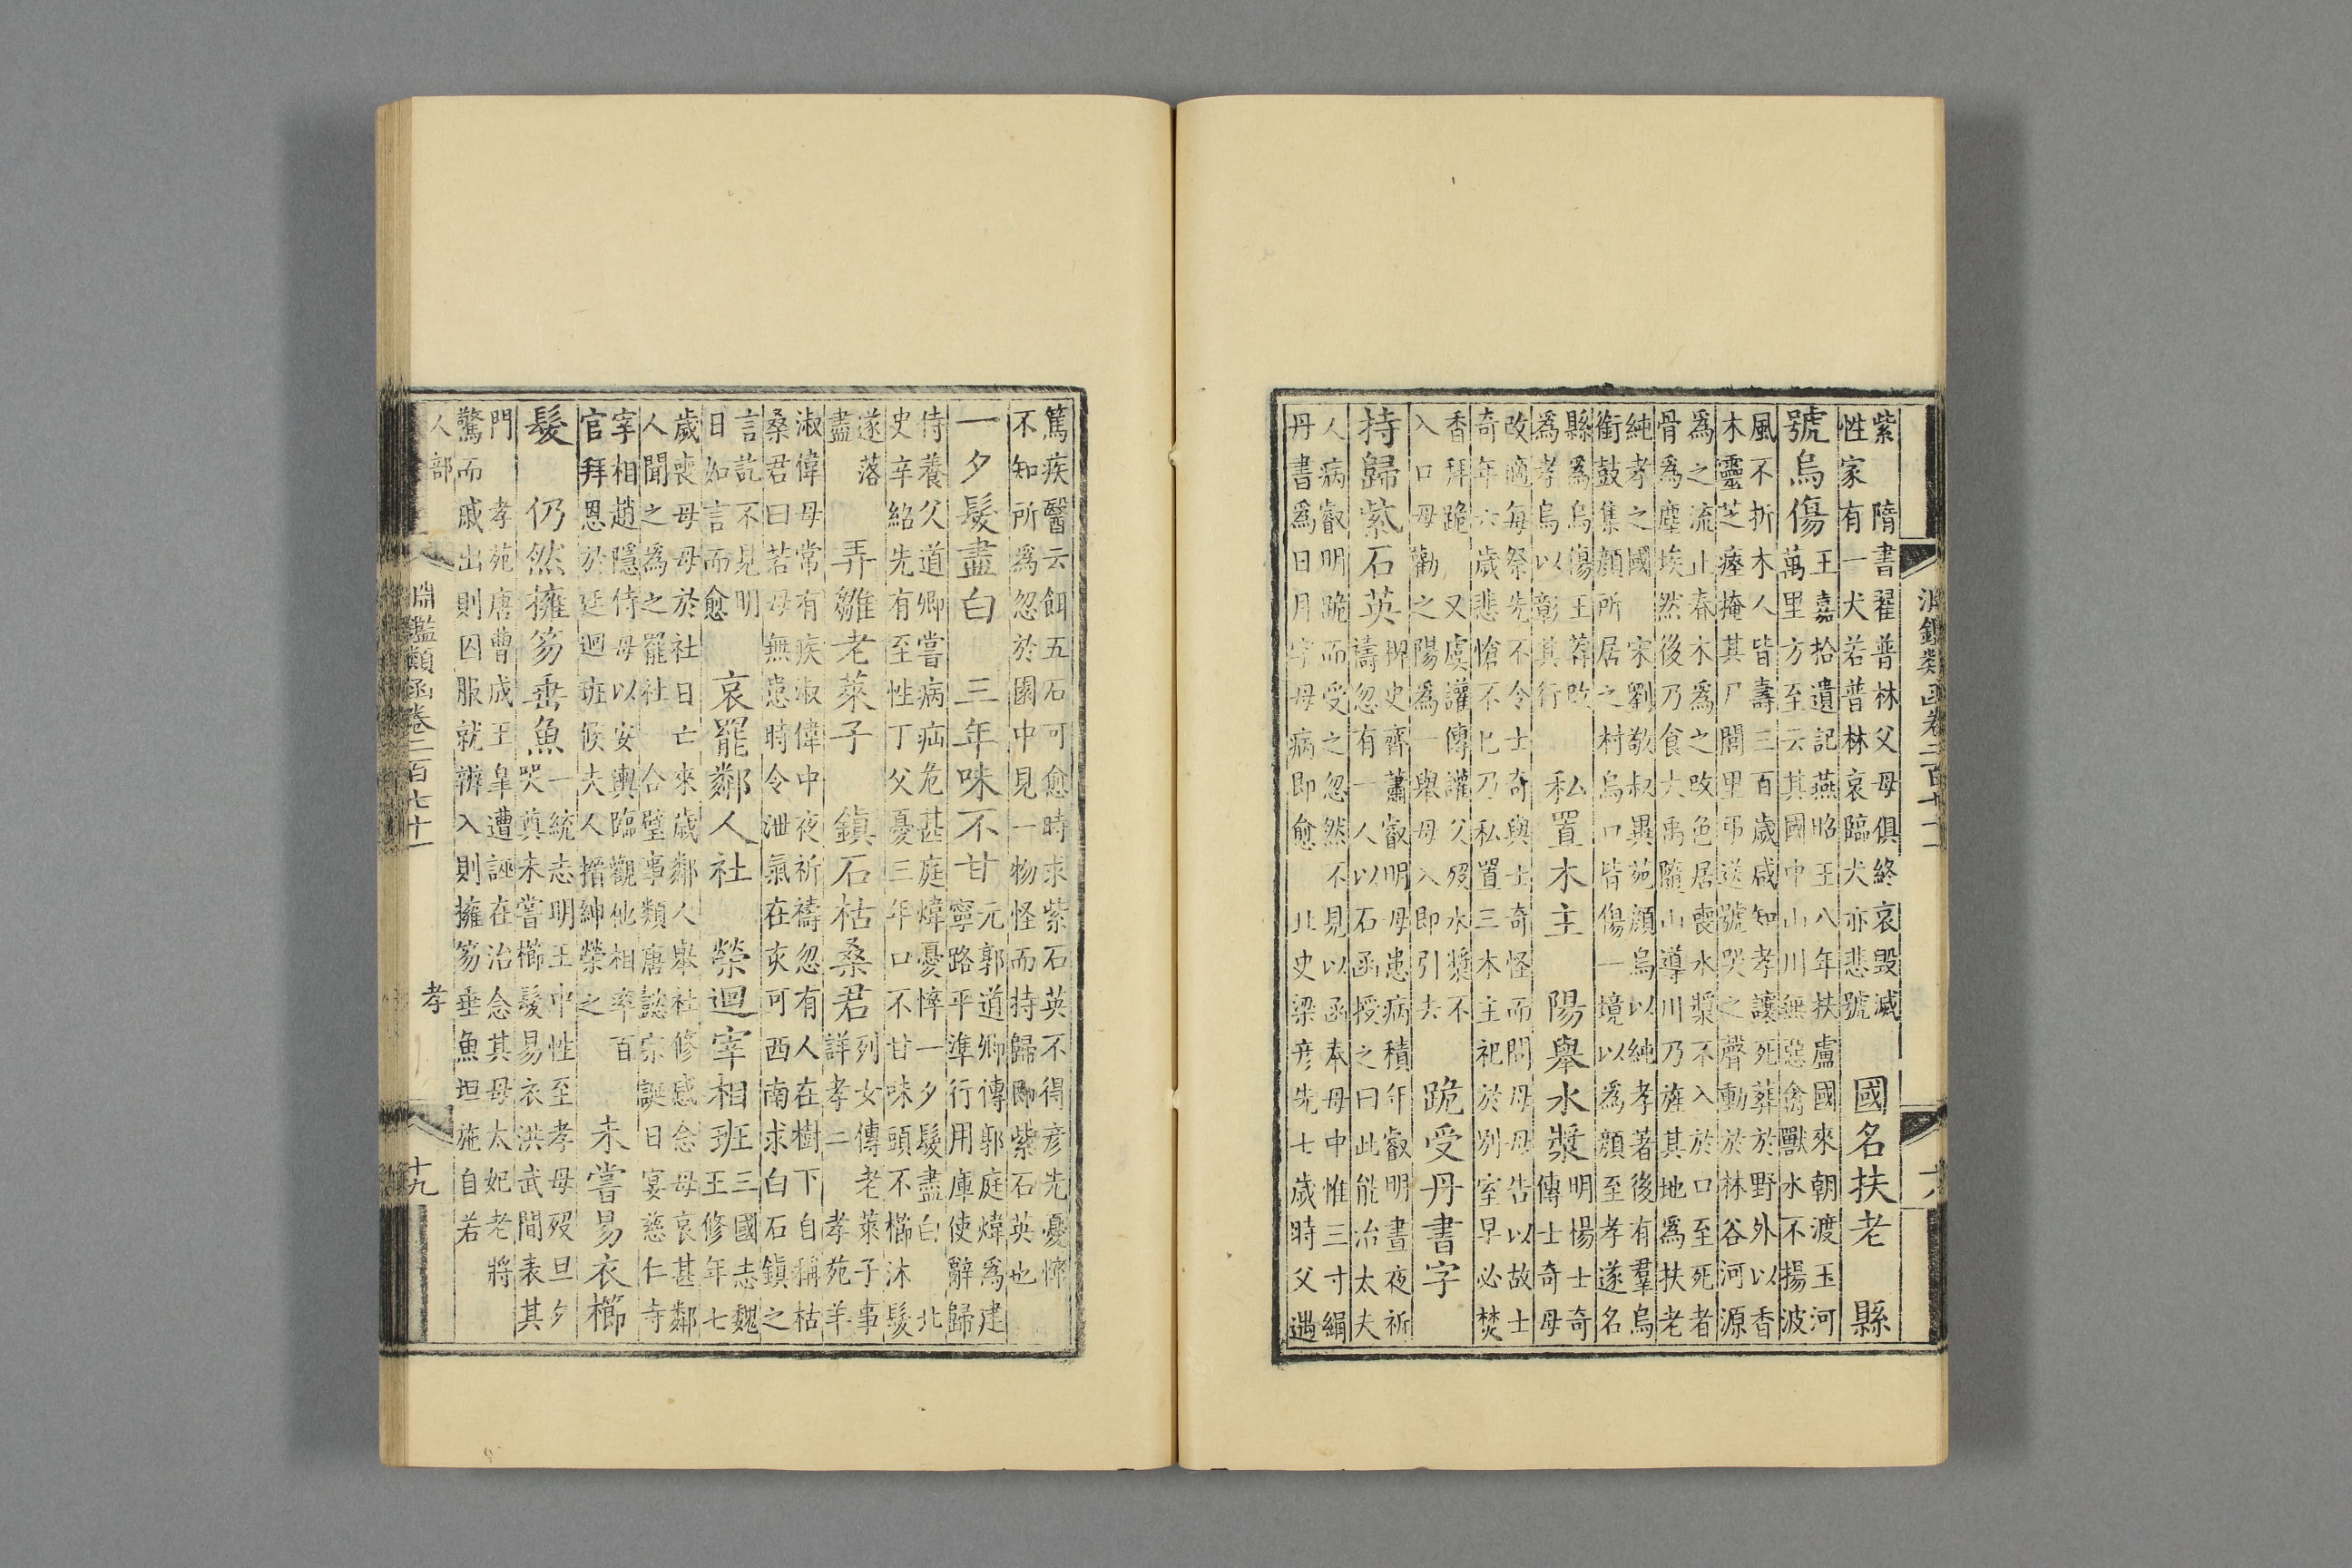 淵鑑類函卷二百七十一
紫 隋書翟普林父母俱終哀毀滅
性家有一犬若普林哀臨犬亦悲號
國名扶老 縣
號烏傷
王嘉拾遺記燕昭王八年扶盧國來朝渡玉河
萬里方至云其國中山川無惡禽獸水不揚波
風不折木人皆壽三百歲咸知孝讓死葬於野外以香
木靈芝瘞掩其尸閭里弔送號哭之聲動於林谷河源
爲之流止春木爲之改色居喪水漿不入於口至死者
骨爲塵埃然後乃食大禹隨山導川乃旌其地爲扶老
純孝之國 宋劉敬叔異苑顔烏以純孝著後有羣烏
銜鼓集顔所居之村烏口皆傷一境以爲顔至孝遂名
縣爲烏傷王莽改
爲孝烏以彰其行
私置木主 陽舉水漿
明楊士奇
傳士奇母
改適每祭先不令士奇與士奇怪而問母母告以故士
奇年六歲悲愴不已乃私置三木主祀於别室早必焚
香拜跪 又虞讙傳讙父歿水漿不
入口母勸之陽爲一舉母入即引去
跪受丹書字
持歸紫石英
稗史齊蕭叡明母患病積年叡明晝夜祈
禱忽有一人以石函授之曰此能治太夫
人病叡明跪而受之忽然不見以函奉母中惟三寸絹
丹書爲日月字母病即愈 北史梁彦先七歲時父遇
篤疾醫云餌五石可愈時求紫石英不得彦先憂悴
不知所爲忽於園中見一物怪而持歸即紫石英也
一夕髮盡白 三年味不甘
元郭道卿傳郭庭煒爲建
寧路平準行用庫使辭歸
侍養父道卿嘗病疝危甚庭煒憂悴一夕髮盡白 北
史辛紹先有至性丁父憂三年口不甘味頭不櫛沐髮
遂落
盡
弄雛老萊子 鎮石枯桑君
列女傳老萊子事
詳孝二 孝苑羊
淑偉母常有疾淑偉中夜祈禱忽有人在樹下自稱枯
桑君曰若母無患時令泄氣在亥可西南求白石鎮之
言訖不見明
日如言而愈
哀罷鄰人社 榮迴宰相班
三國志魏
王修年七
歲喪母母於社日亡來歲鄰人舉社修感念母哀甚鄰
人聞之爲之罷社 合璧事類唐懿宗誕日宴慈仁寺
宰相趙隱侍母以安輿臨觀他相率百
官拜恩於廷迴班候夫人搢紳榮之
未嘗易衣櫛
髮 仍然擁笏垂魚
一統志明王中性至孝母歿旦夕
哭奠未嘗櫛髮易衣洪武間表其
門 孝苑唐曹成王皐遭誣在治念其母太妃老將
驚而戚出則囚服就辨入則擁笏垂魚坦施自若
人部
淵鑑類函卷二百七十一
孝
十九